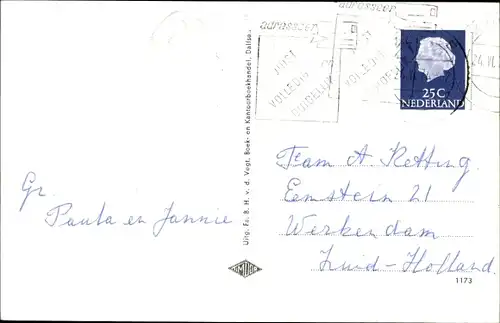 adresseer
adresseer
JUIST
VOLLEDIG
DUIDELIJK
25C
NEDERLAND
Gr.
Paula en Jannie
Uitg. Fa. B. H. v. d. Vegt, Boek- en Kantoorboekhandel, Dalfsen
Eemstein 21
Werkendam
Zuid-Holland.
1173